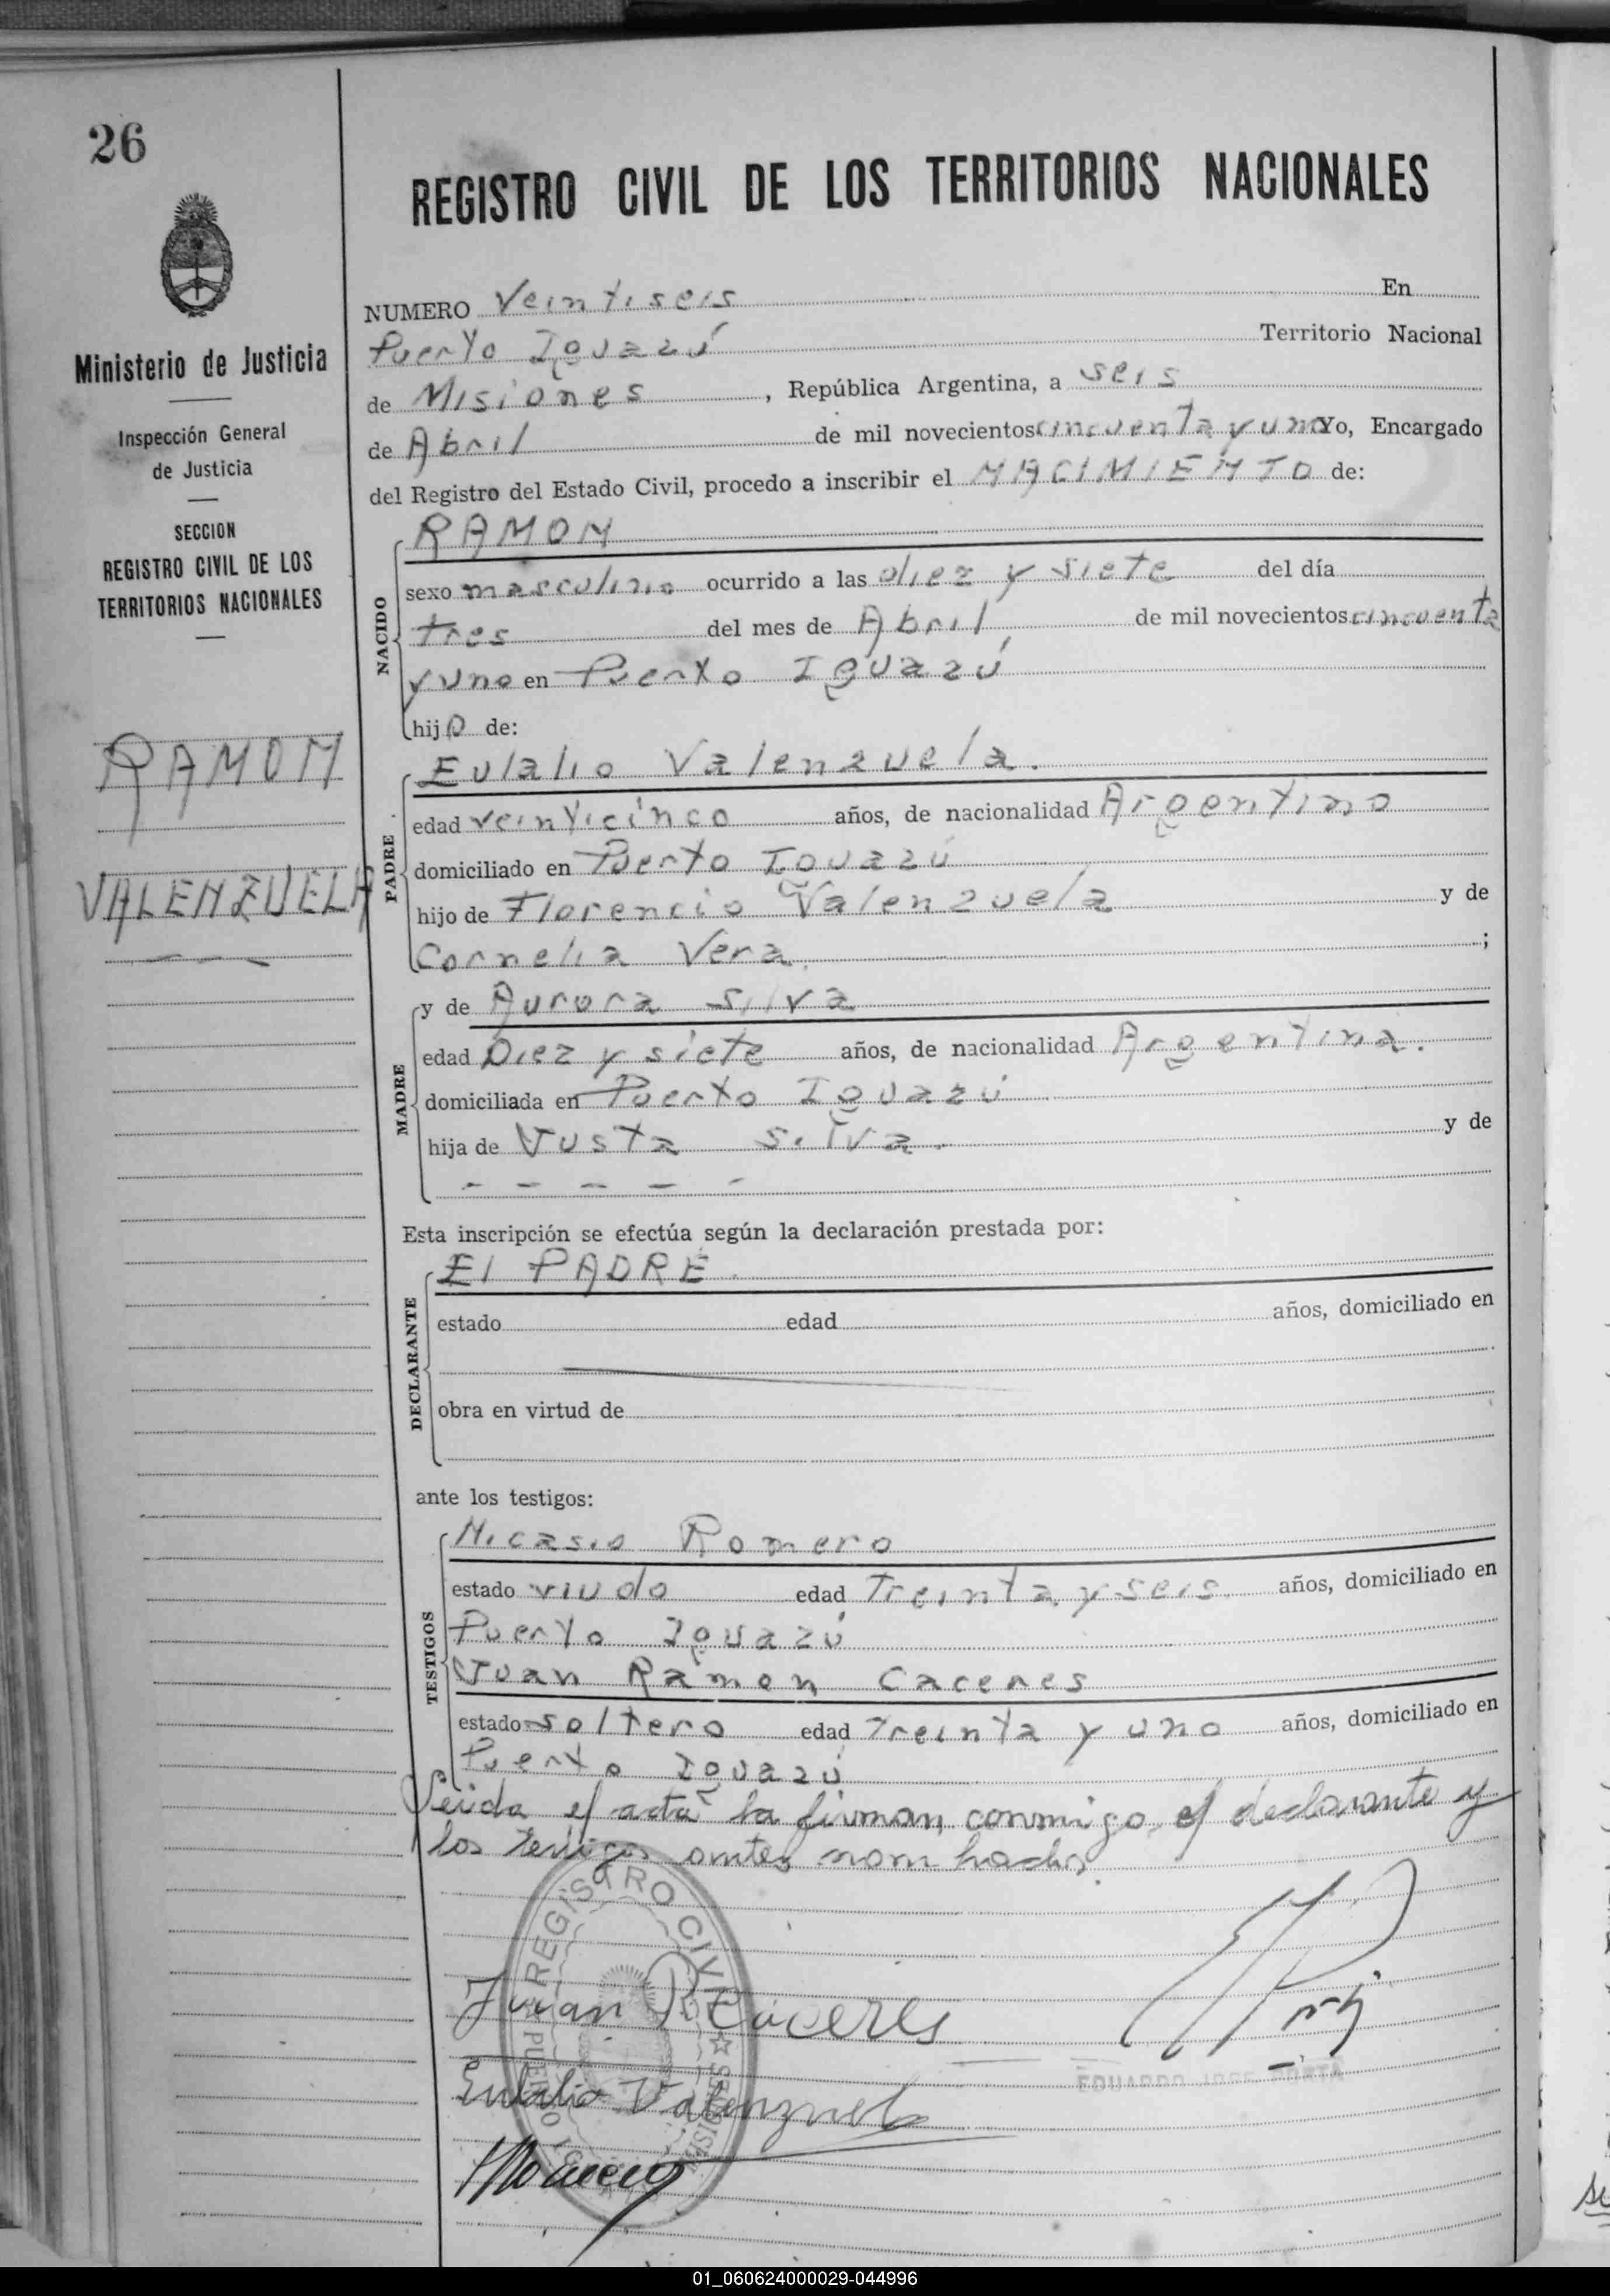 26
Ministerio de Justicia
Inspección General
de Justicia
SECCION
REGISTRO CIVIL DE LOS
TERRITORIOS NACIONALES
RAMON
VALENZUELA
REGISTRO CIVIL DE LOS TERRITORIOS NACIONALES
NUMERO Veintiseis En
Puerto Iguazú Territorio Nacional
de Misiones, República Argentina, a seis
de Abril de mil novecientos cincuenta y uno Yo, Encargado
del Registro del Estado Civil, procedo a inscribir el NACIMIENTO de:
NACIDO
RAMON
sexo masculino ocurrido a las diez y siete del día
tres del mes de Abril, de mil novecientos cincuenta
y uno en Puerto Iguazú
hijo de:
PADRE
Eulalio Valenzuela.
edad veinticinco años, de nacionalidad Argentino
domiciliado en Puerto Iguazú
hijo de Florencio Valenzuela y de
Cornelia Vera. ;
MADRE
y de Aurora Silva
edad Diez y siete años, de nacionalidad Argentina.
domiciliada en Puerto Iguazú
hija de Justa Silva. y de
- - - - -
Esta inscripción se efectúa según la declaración prestada por:
DECLARANTE
El PADRE.
estado edad años, domiciliado en
obra en virtud de
ante los testigos:
TESTIGOS
Nicasio Romero
estado viudo edad Treinta y seis. años, domiciliado en
Puerto Iguazú
Juan Ramon Caceres
estado soltero edad Treinta y uno años, domiciliado en
Puerto Iguazú
Leida el acta la firman conmigo el declarante y
los testigos antes nombrados.
REGISTRO CIVIL
Juan R Caceres
EDUARDO JOSE
Eulalio Valenzuela
NRomero
01_060624000029-044996